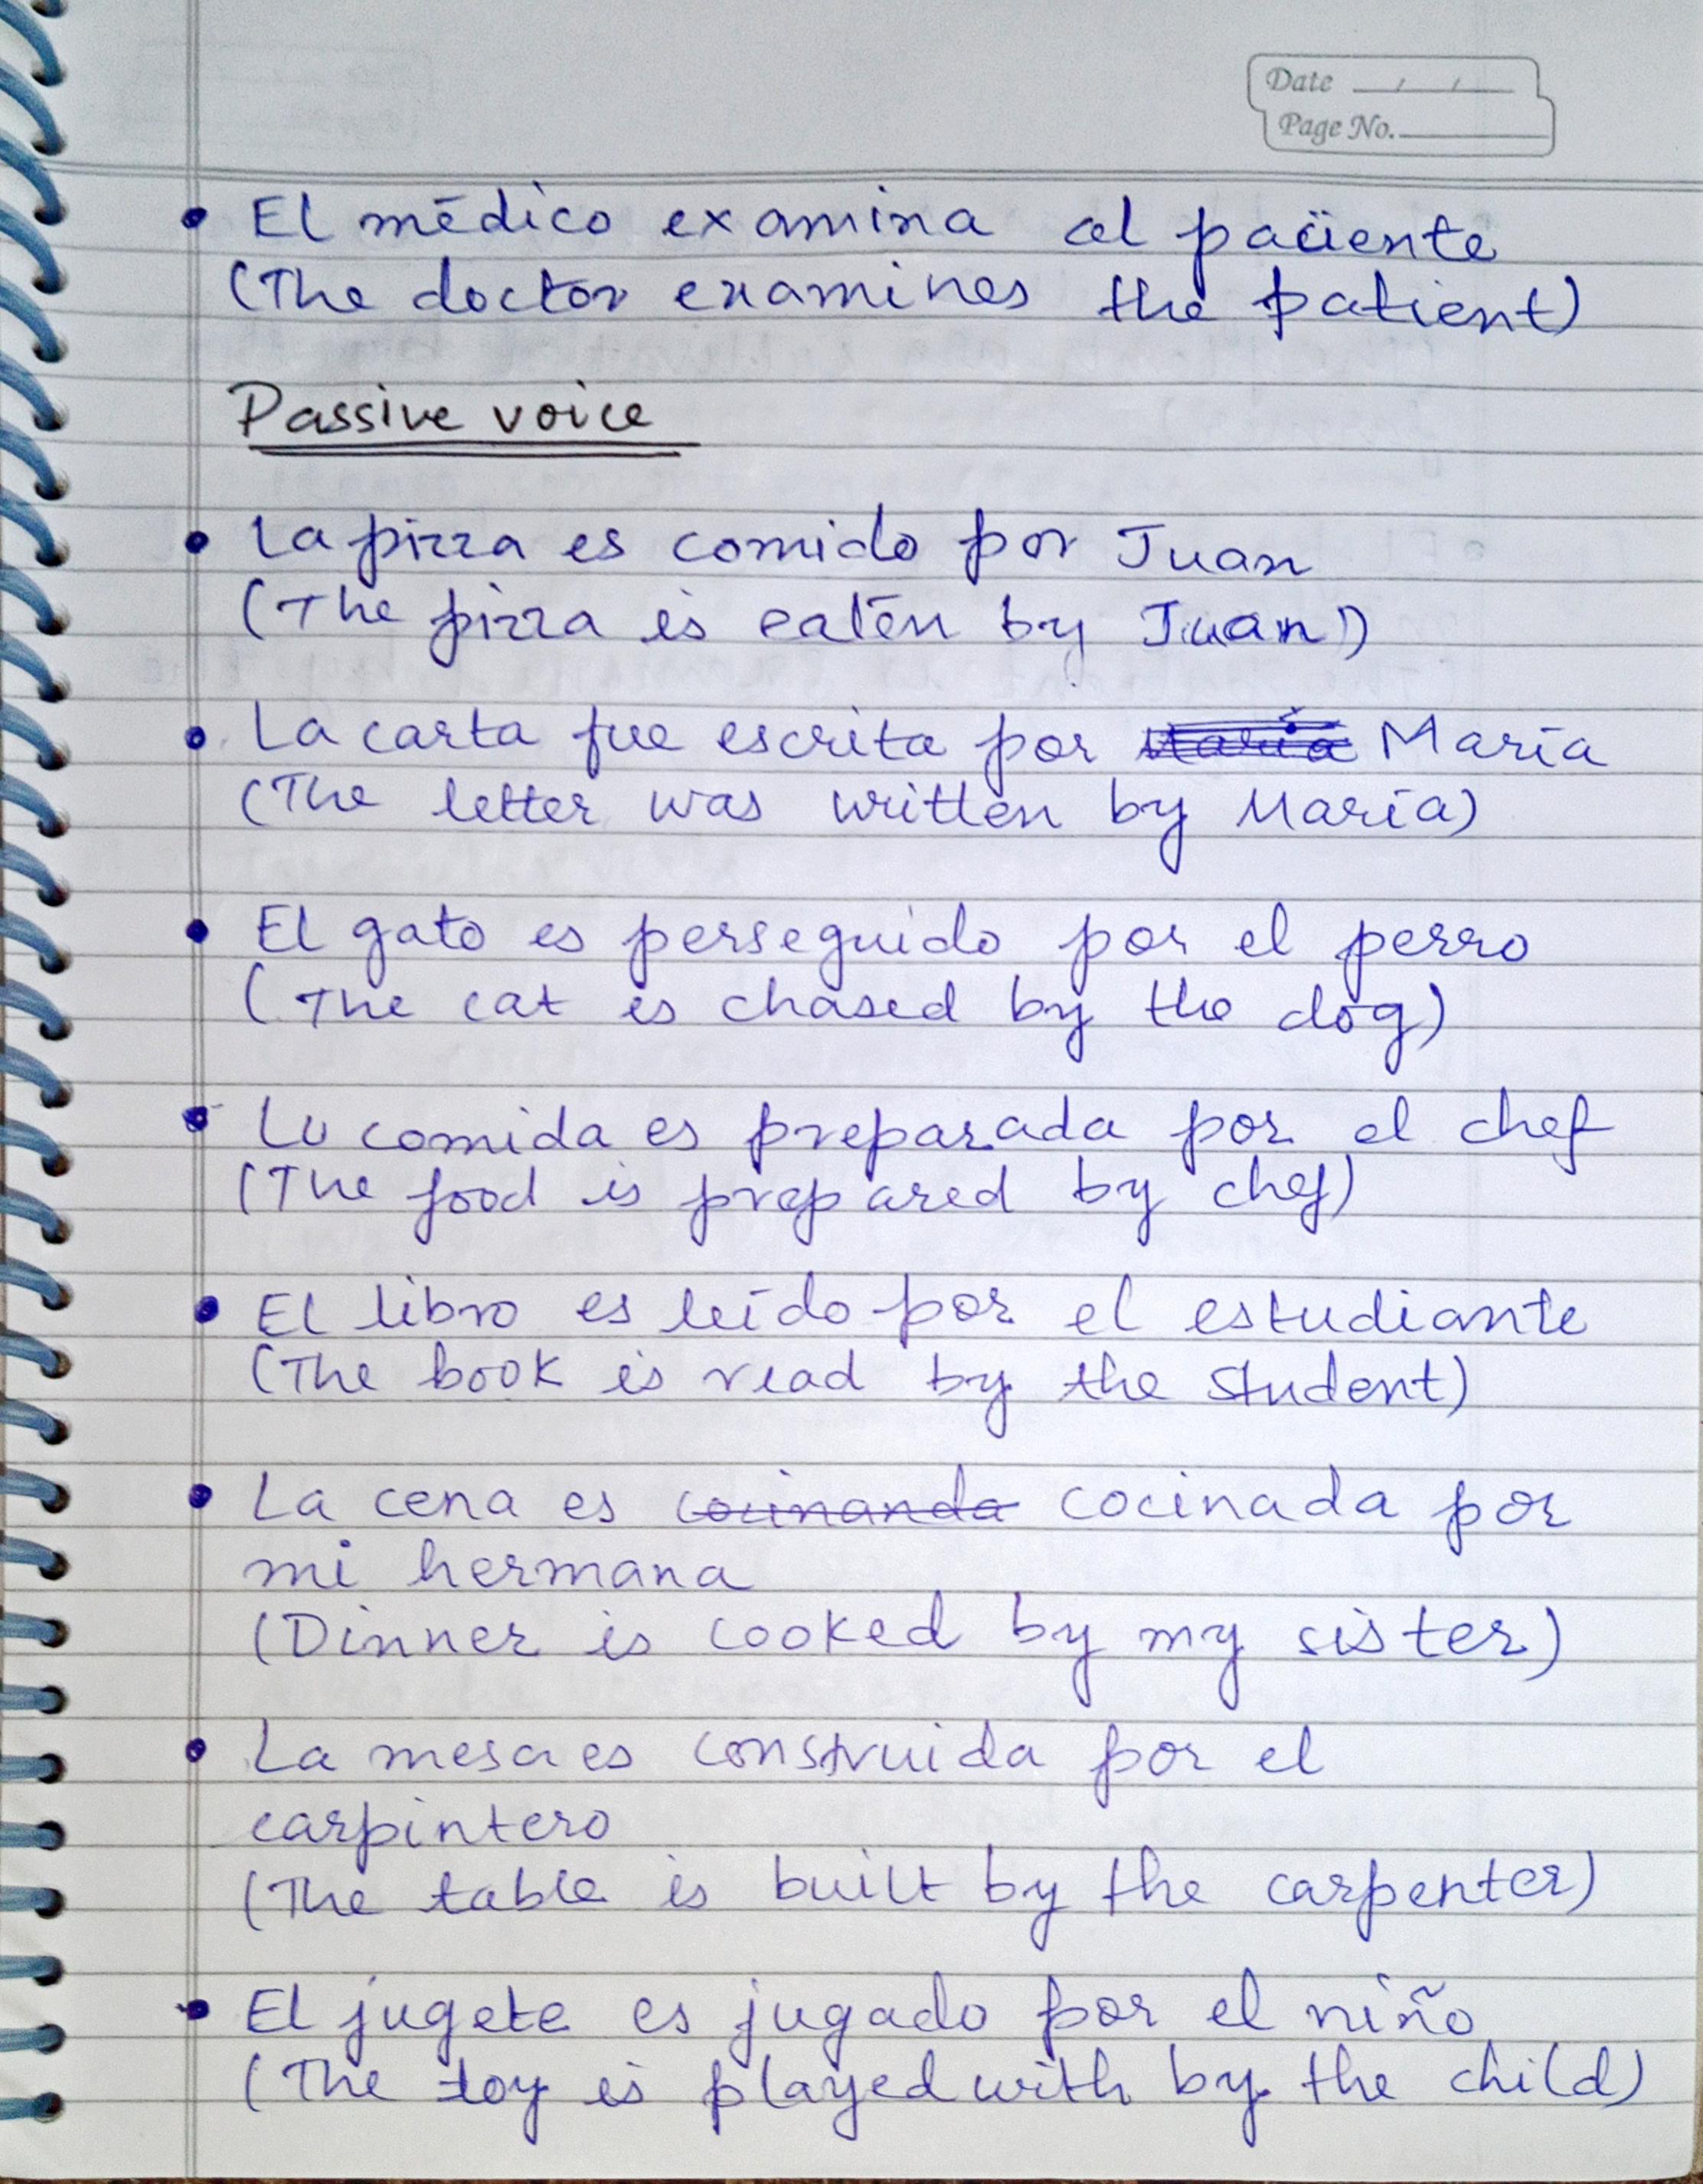 Date / /
Page No.
• El médico examina al paciente
(The doctor examines the patient)
Passive voice
• La pizza es comido por Juan
(The pizza is eaten by Juan)
• La carta fue escrita por María María
(The letter was written by María)
• El gato es perseguido por el perro
(The cat is chased by the dog)
• La comida es preparada por el chef
(The food is prepared by chef)
• El libro es leído por el estudiante
(The book is read by the student)
• La cena es cocinanda cocinada por
mi hermana
(Dinner is cooked by my sister)
• La mesa es construida por el
carpintero
(The table is built by the carpenter)
• El jugete es jugado por el niño
(The toy is played with by the child)